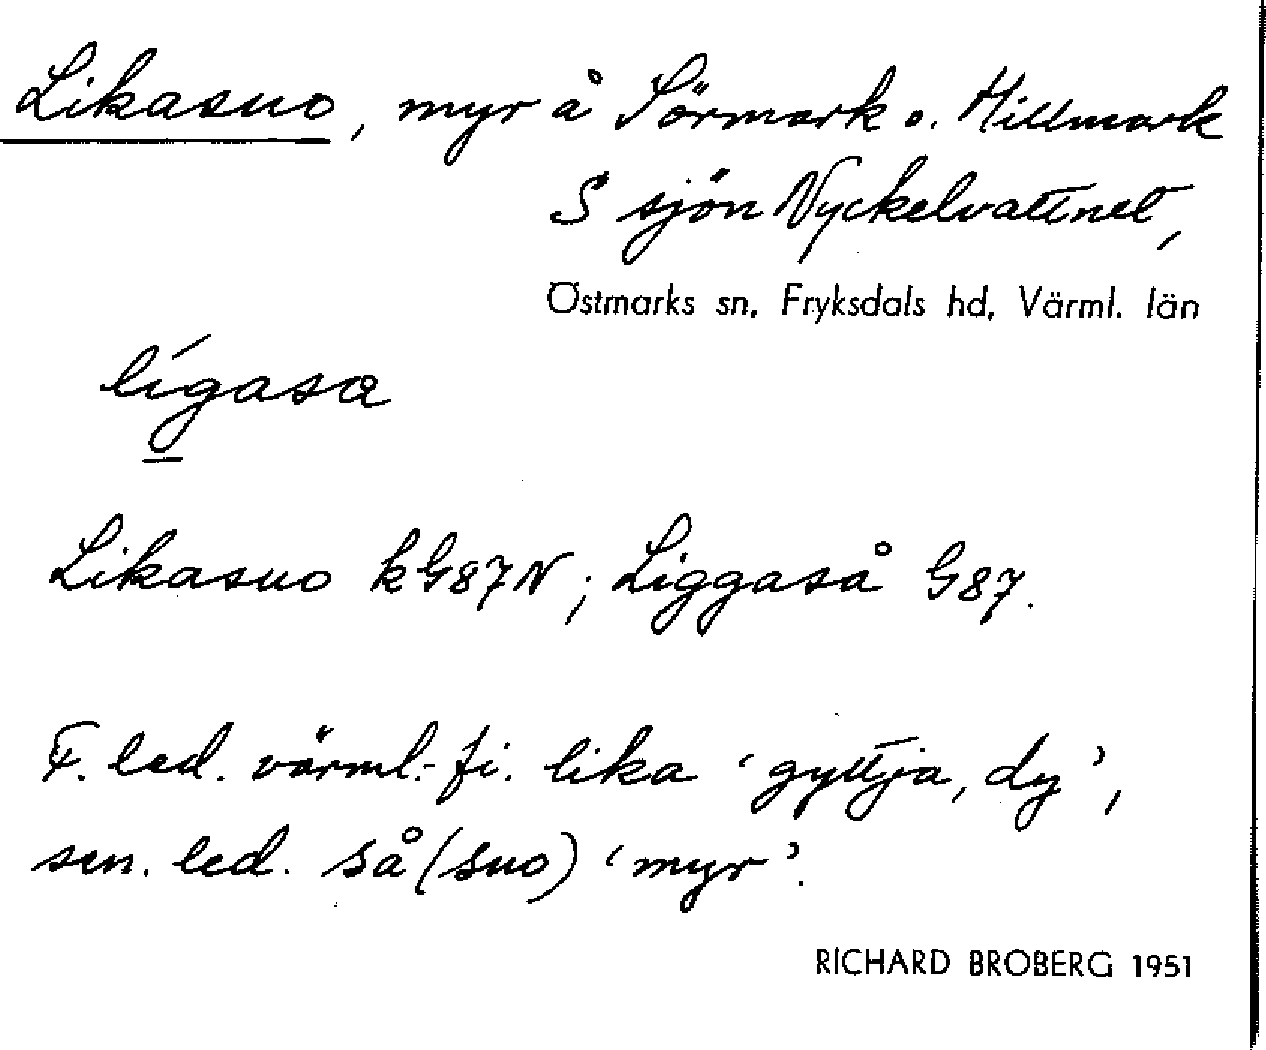 Likasuo, myr å Sörmark o. Hillmark
S sjön Nyckelvattnet,
Östmarks sn, Fryksdals hd, Värml. län
lígasa
Likasuo kG87N; Liggaså G87.
F. led. värml.-fi. lika 'gyttja, dy',
sen. led. så (suo) 'myr'.
RICHARD BROBERG 1951